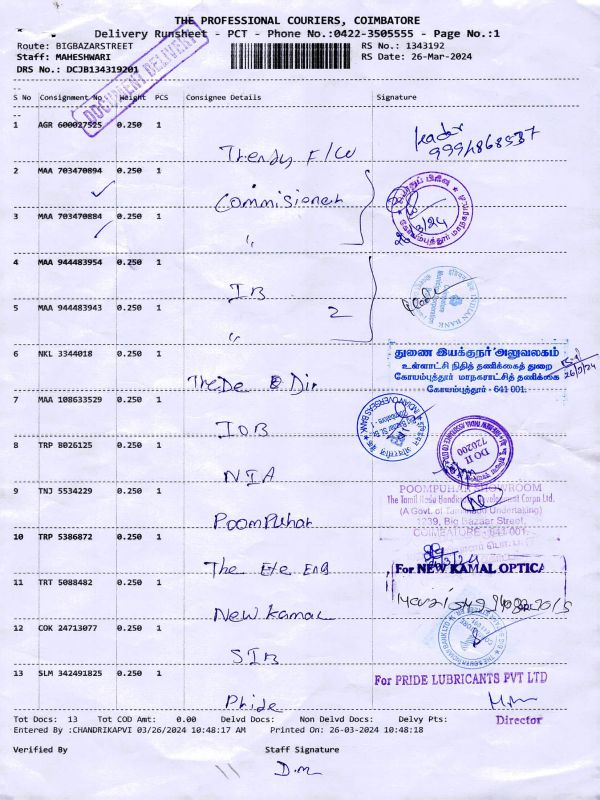 THE PROFESSIONAL COURIERS, COIMBATORE
Delivery Runsheet - PCT - Phone No.:0422-3505555 - Page No.:1
Route: BIGBAZARSTREET
RS No.: 1343192
Staff: MAHESHWARI
RS Date: 26-Mar-2024
DRS No.: DCJB134319201
DOCUMENT DELIVERY
S No Consignment No Weight PCS Consignee Details Signature
1 AGR 600027525 0.250 1
Trendy F/W
9994868537
2 MAA 703470894 0.250 1
Commisioner
3 MAA 703470884 0.250 1
"
4 MAA 944483954 0.250 1
IB
2
INDIAN BANK
5 MAA 944483943 0.250 1
"
6 NKL 3344018 0.250 1
The De & Dir
துணை இயக்குநர் அலுவலகம்
உள்ளாட்சி நிதித் தணிக்கைத் துறை
கோயம்புத்தூர் மாநகராட்சித் தணிக்கை
கோயம்புத்தூர் - 641 001.
7 MAA 108633529 0.250 1
IOB
INDIAN OVERSEAS BANK
8 TRP 8026125 0.250 1
NIA
DO II
720200
9 TNJ 5534229 0.250 1
Poompuhar
POOMPUHAR SHOWROOM
(A Govt. of Tamilnadu Undertaking)
1239, Big Bazaar Street,
COIMBATORE - 641 001.
10 TRP 5386872 0.250 1
The Exe Eng
11 TRT 5088482 0.250 1
New Kamal
For NEW KAMAL OPTICA
12 COK 24713077 0.250 1
SIB
THE SOUTH INDIAN BANK LTD
13 SLM 342491825 0.250 1
Pride
For PRIDE LUBRICANTS PVT LTD
Director
Tot Docs: 13 Tot COD Amt: 0.00 Delvd Docs: Non Delvd Docs: Delvy Pts:
Entered By :CHANDRIKAPVI 03/26/2024 10:48:17 AM Printed On: 26-03-2024 10:48:18
Verified By Staff Signature
D.M